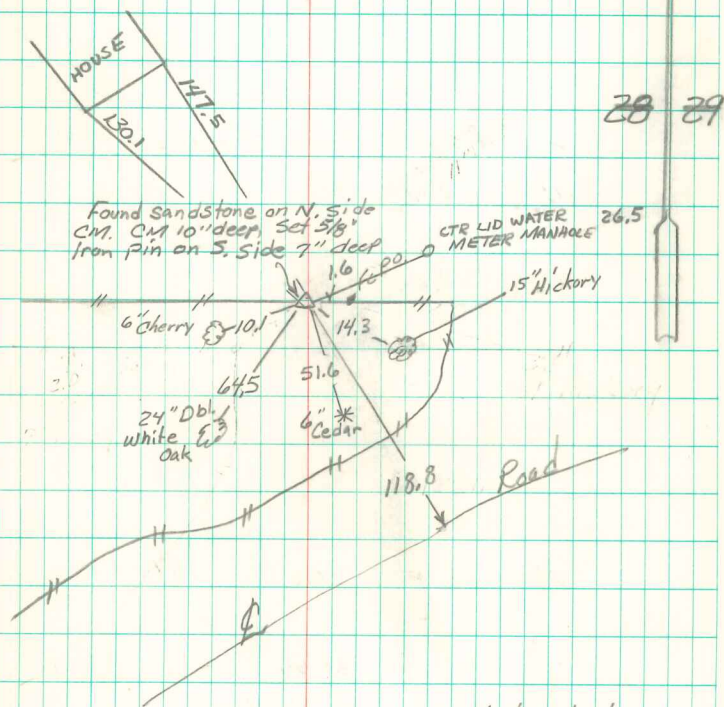 HOUSE
147.5
130.1
28 29
Found sandstone on N. side
CM. CM 10" deep, Set 5/8"
Iron pin on S. Side 7" deep
CTR LID WATER
METER MANHOLE
26.5
1.6
15" Hickory
6" Cherry
10.1
14.3
64.5
51.6
24" Dbl.
White
Oak
6"
Cedar
118.8
Road
℄